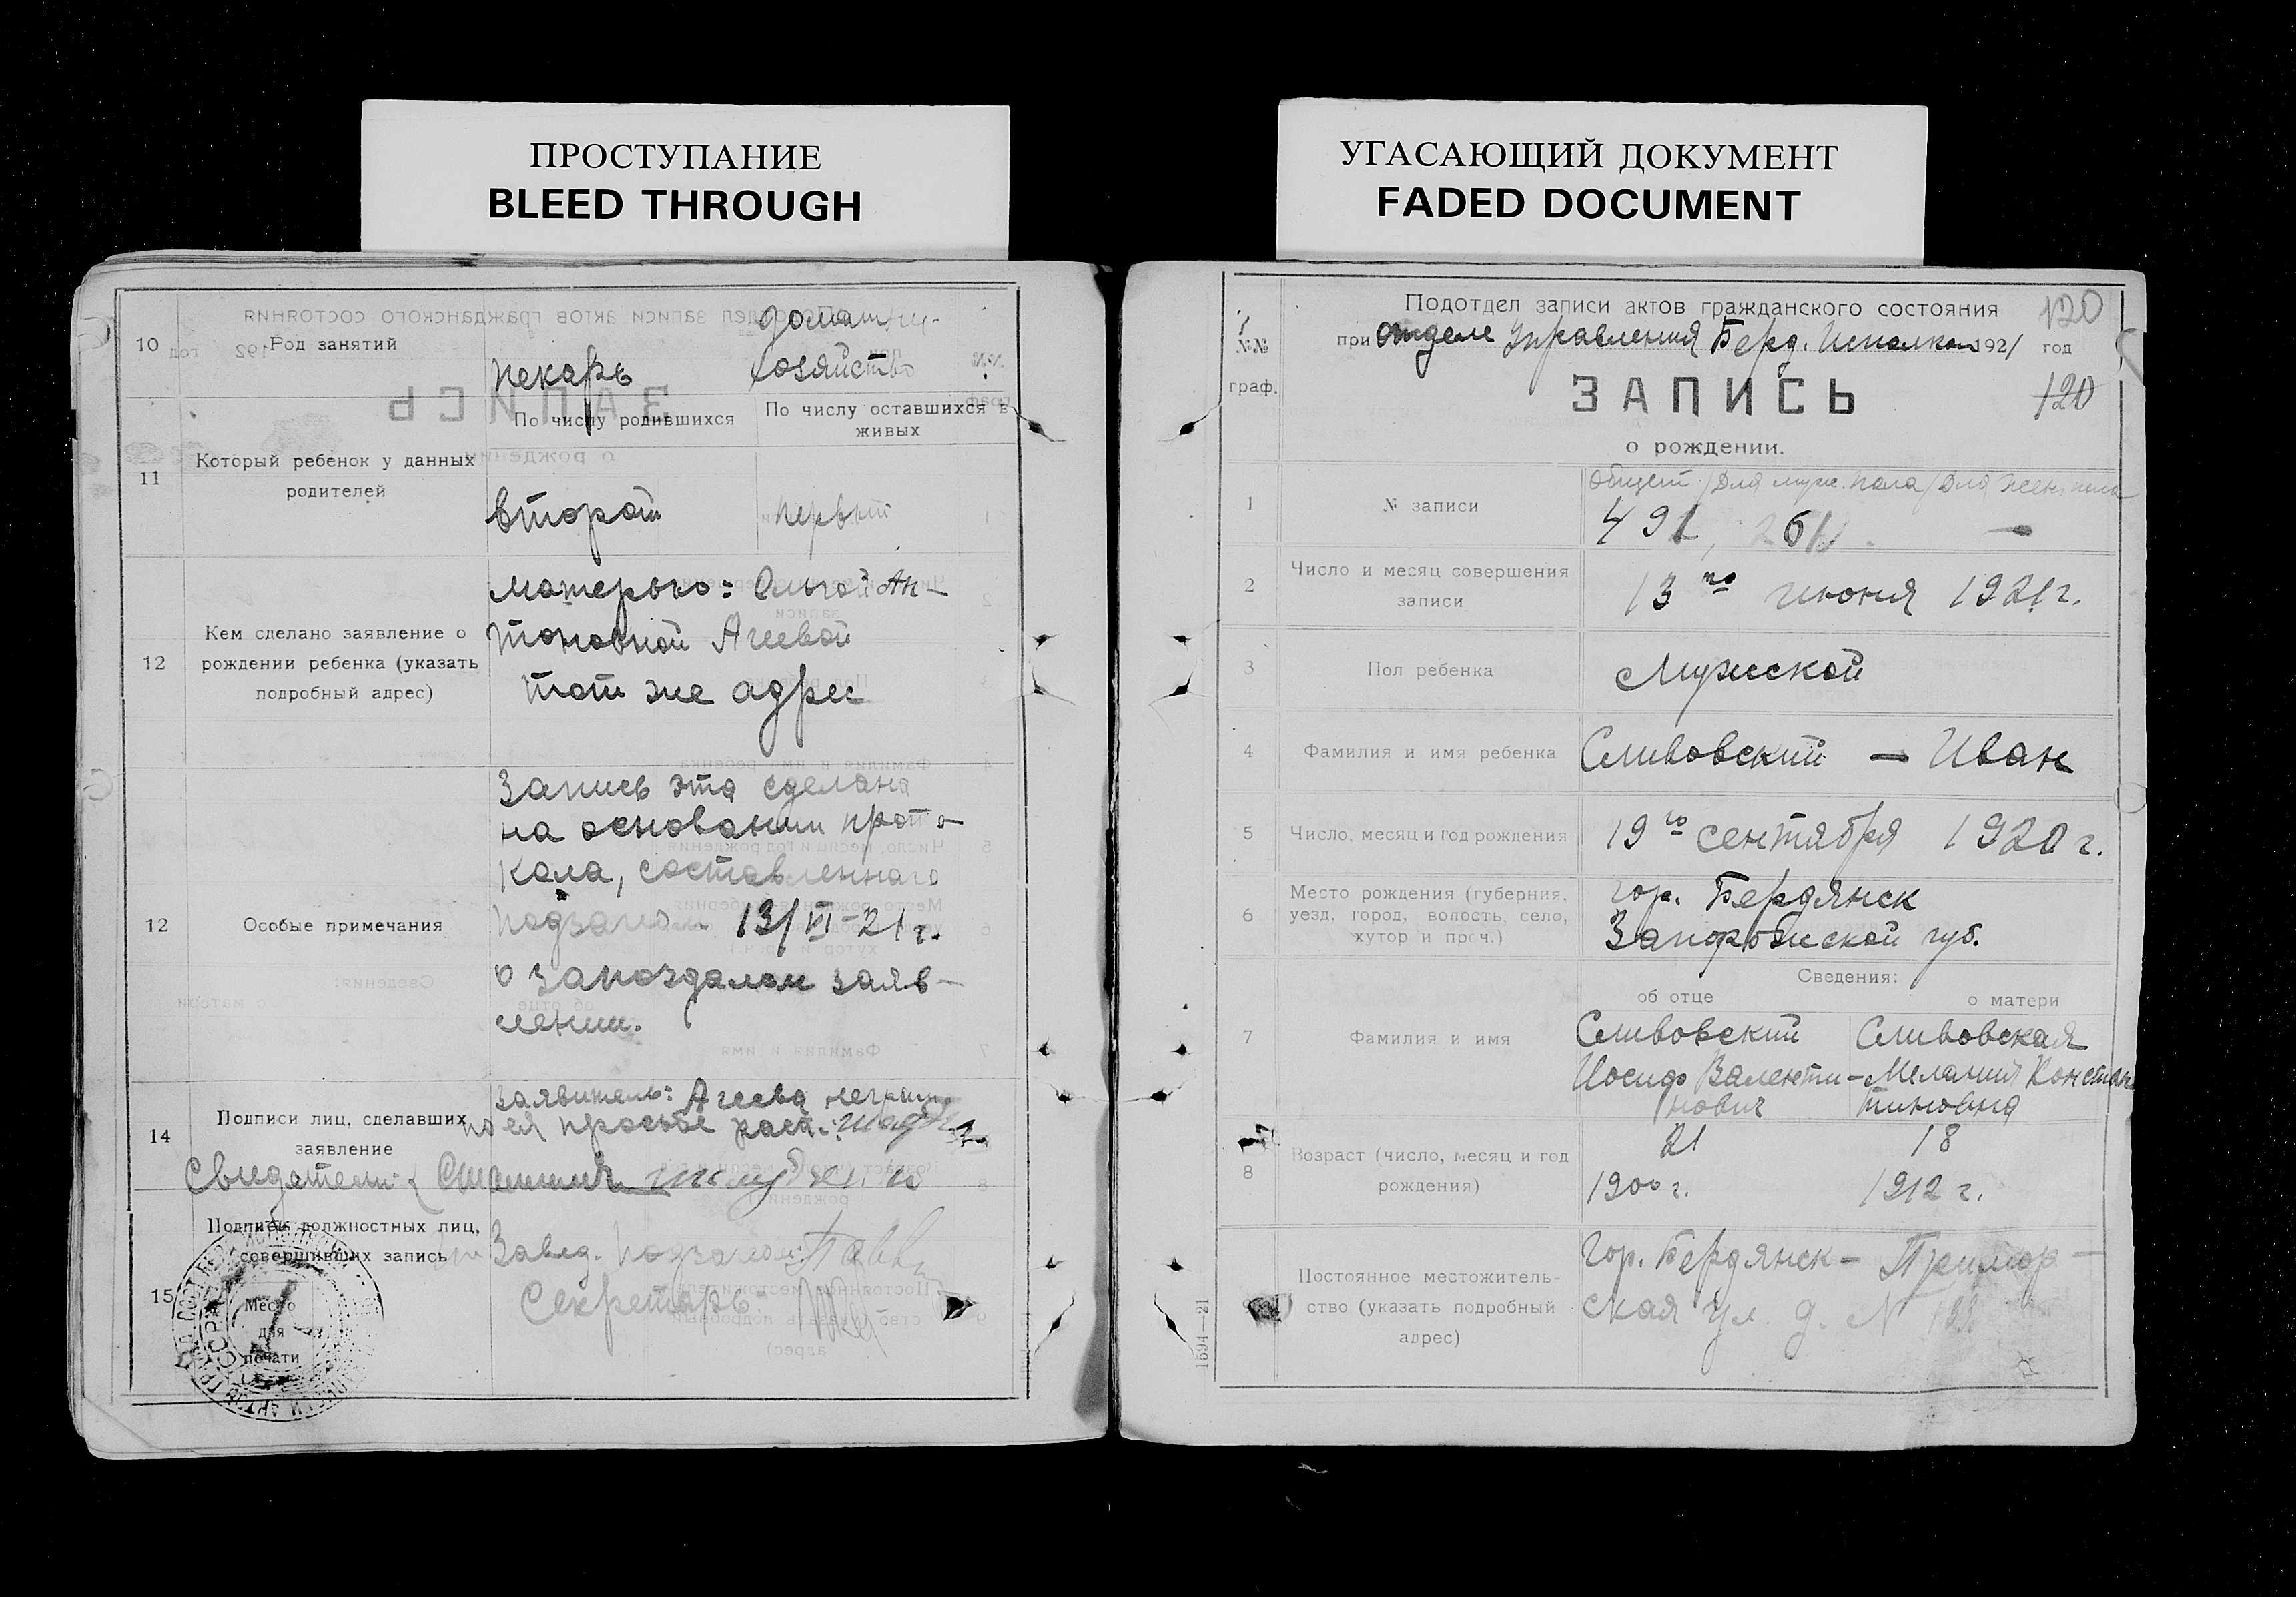 ПРОСТУПАНИЕ
BLEED THROUGH
10
Род занятий
пекарь
домашн.
хозяйство
11
Который ребенок у данных
родителей
По числу родившихся
По числу оставшихся в
живых
второй
первый
12
Кем сделано заявление о
рождении ребенка (указать
подробный адрес)
матерью: Ольгой Ан-
тоновной Агеевой
тот же адрес
12
Особые примечания
Запись эта сделана
на основании прото-
кола, составленнаго
подзагсом 13/VI-21 г.
о запоздалом заяв-
лении.
14
Подписи лиц, сделавших
заявление
Заявитель: Агеева неграм.
по ея просьбе расп.
Свидетели:
15
Подписи должностных лиц,
совершивших запись
Место
для
печати
Завед. подзагсом:
Секретарь:
УГАСАЮЩИЙ ДОКУМЕНТ
FADED DOCUMENT
120
№№
граф.
Подотдел записи актов гражданского состояния
при отделе Управления Берд. Исполком 1921 год
ЗАПИСЬ
120
о рождении.
1
№ записи
Общий / Для муж. пола / Для жен. пола
491 261 —
2
Число и месяц совершения
записи
13го июня 1921 г.
3
Пол ребенка
Мужской
4
Фамилия и имя ребенка
Сливовский — Иван
5
Число, месяц и год рождения
19го сентября 1920 г.
6
Место рождения (губерния,
уезд, город, волость, село,
хутор и проч.)
гор. Бердянск
Запорожской губ.
Сведения:
об отце
о матери
7
Фамилия и имя
Сливовский
Иосиф Валенти-
нович
Сливовская
Мелания Констан
тиновна
8
Возраст (число, месяц и год
рождения)
21
1900 г.
18
1912 г.
9
Постоянное местожитель-
ство (указать подробный
адрес)
Гор. Бердянск - Примор-
ская ул. д. №
1594—21